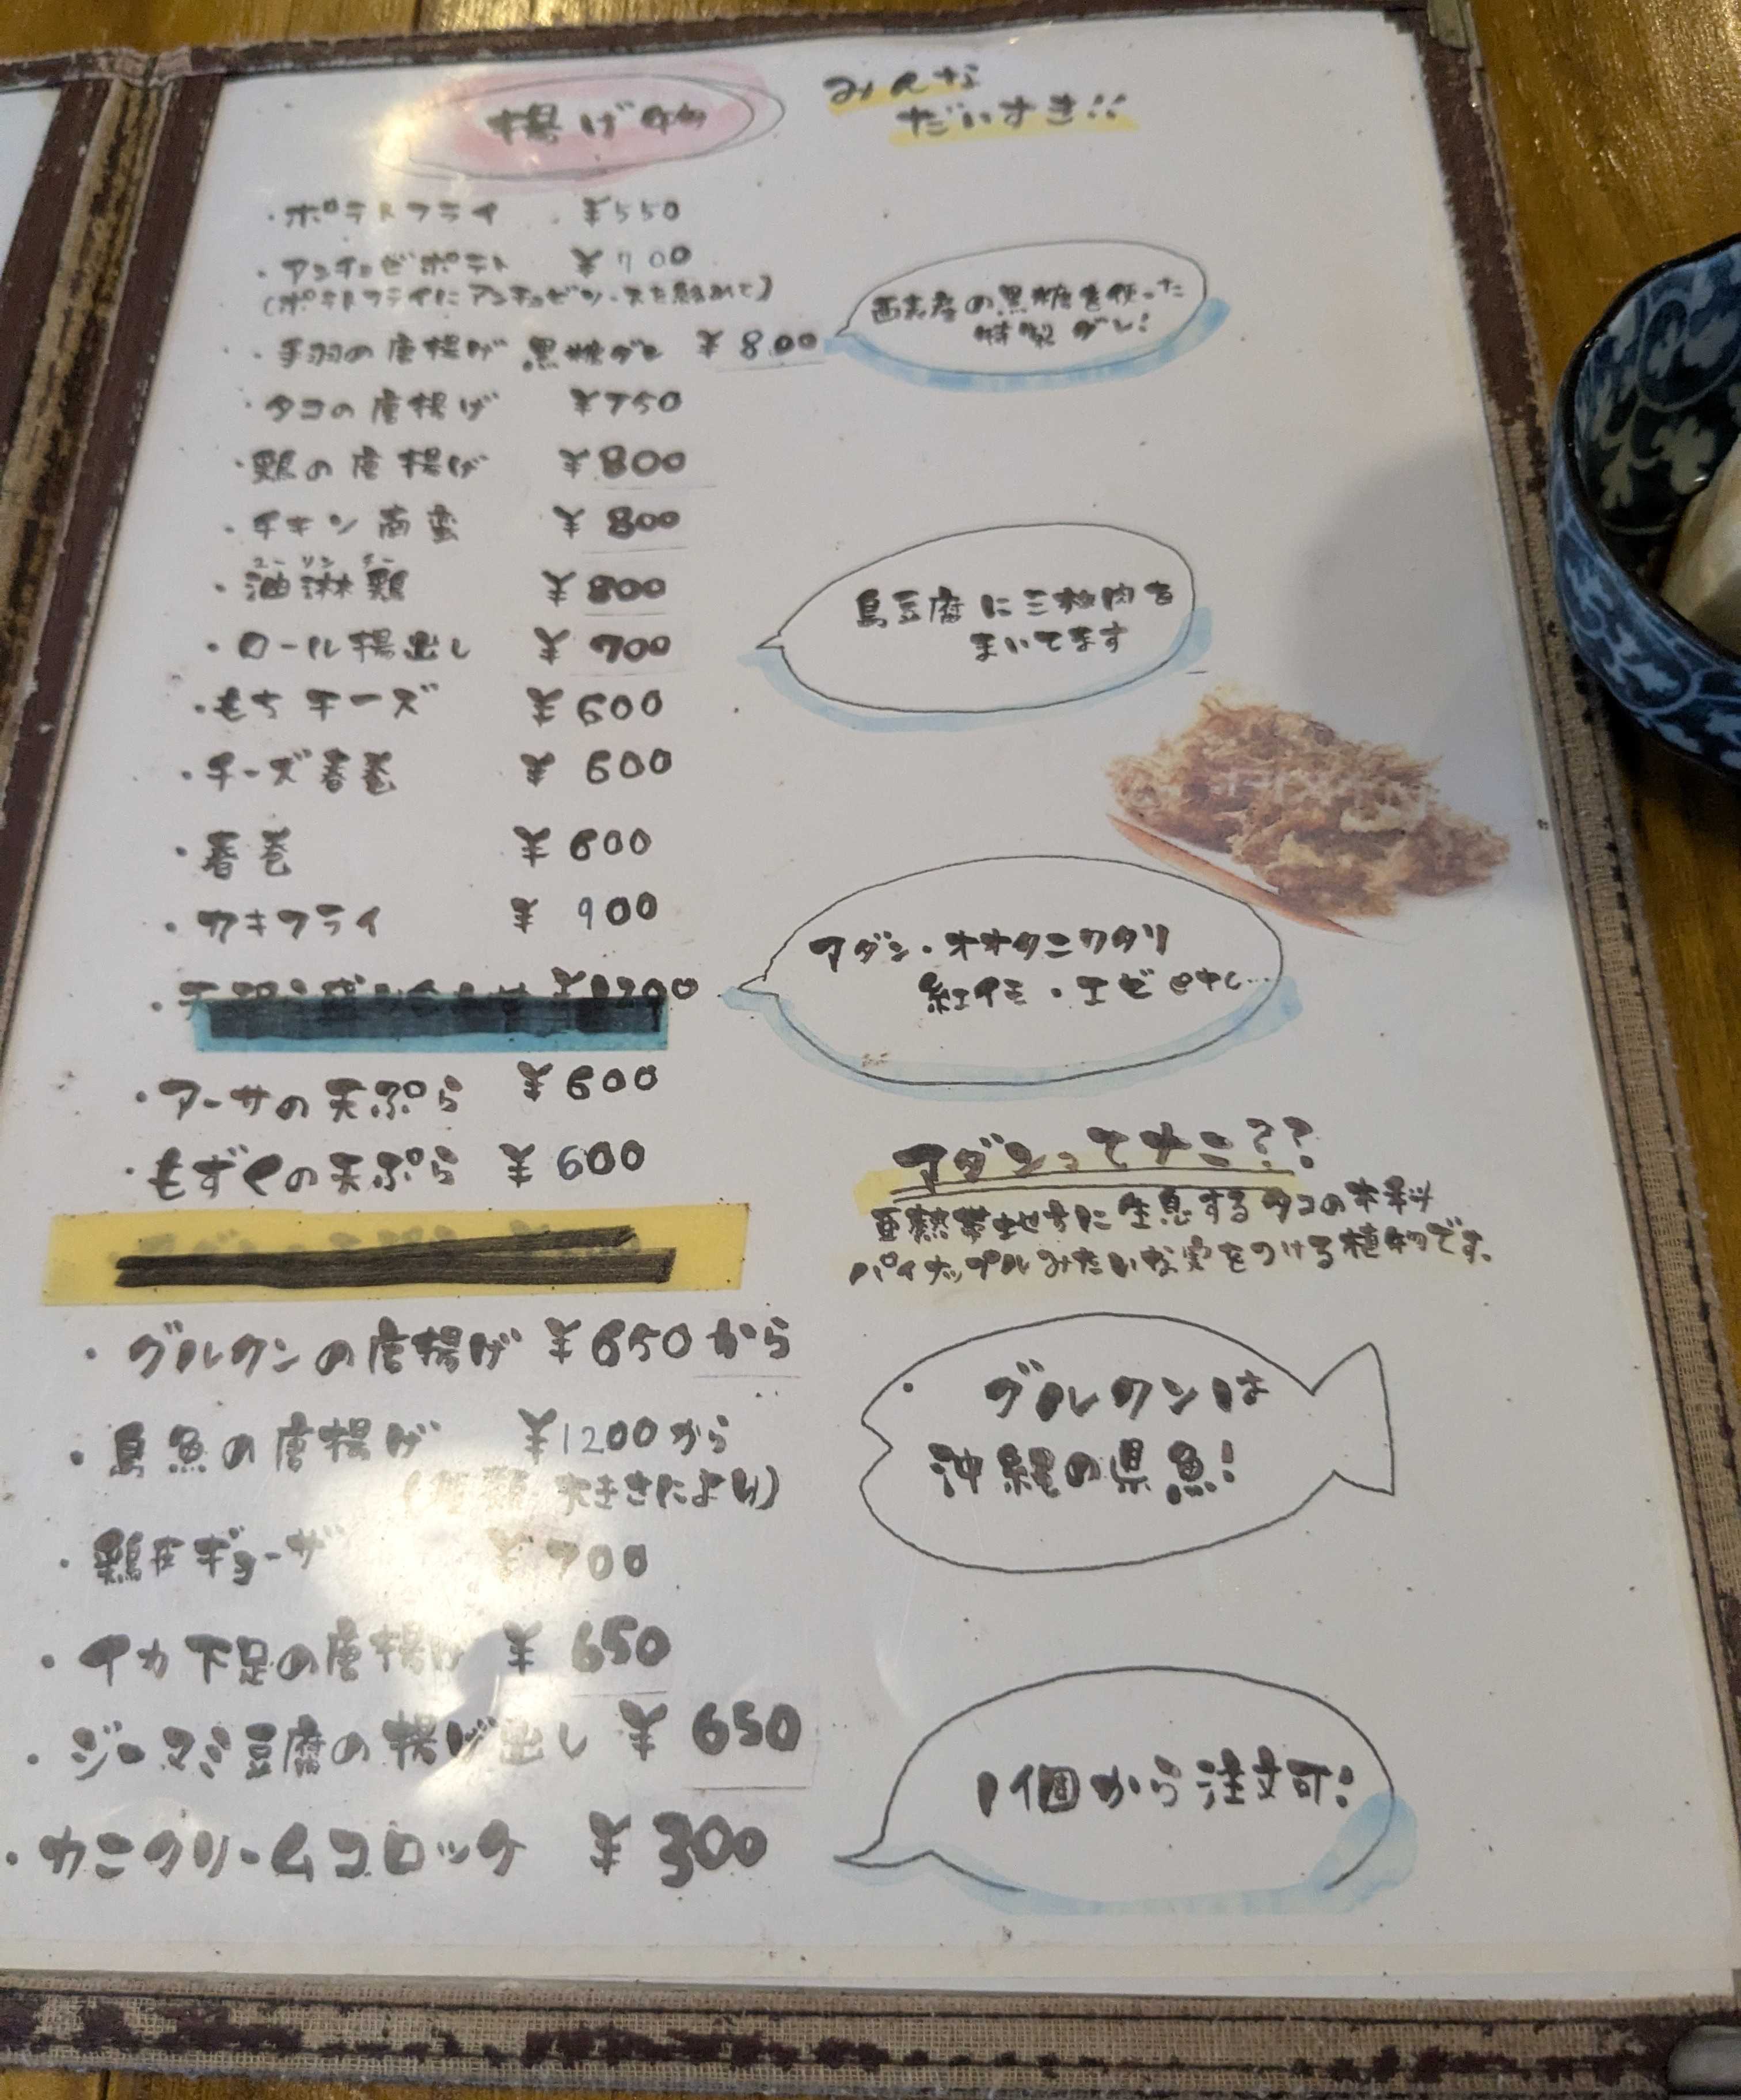 揚げ物
みんな
だいすき!!
・ポテトフライ ¥550
・アンチョビポテト ¥700
(ポテトフライにアンチョビソースを絡めて)
・手羽の唐揚げ 黒糖ダレ ¥800
西表産の黒糖を使った
特製ダレ!
・タコの唐揚げ ¥750
・鶏の唐揚げ ¥800
・チキン南蛮 ¥800
ユーリンチー
・油淋鶏 ¥800
・ロール揚出し ¥700
島豆腐に三枚肉を
まいてます
・もちチーズ ¥600
・チーズ春巻 ¥600
・春巻 ¥600
・カキフライ ¥900
アダン・オオタニワタリ
紅イモ・エビetc...
・アーサの天ぷら ¥600
・もずくの天ぷら ¥600
アダンってナニ??
亜熱帯地方に生息するタコの木科
パイナップルみたいな実をつける植物です。
・グルクンの唐揚げ ¥650から
・島魚の唐揚げ ¥1200から
(種類 大きさにより)
グルクンは
沖縄の県魚!
・鶏皮ギョーザ ¥700
・イカ下足の唐揚げ ¥650
・ジーマミ豆腐の揚げ出し ¥650
・カニクリームコロッケ ¥300
1個から注文可!